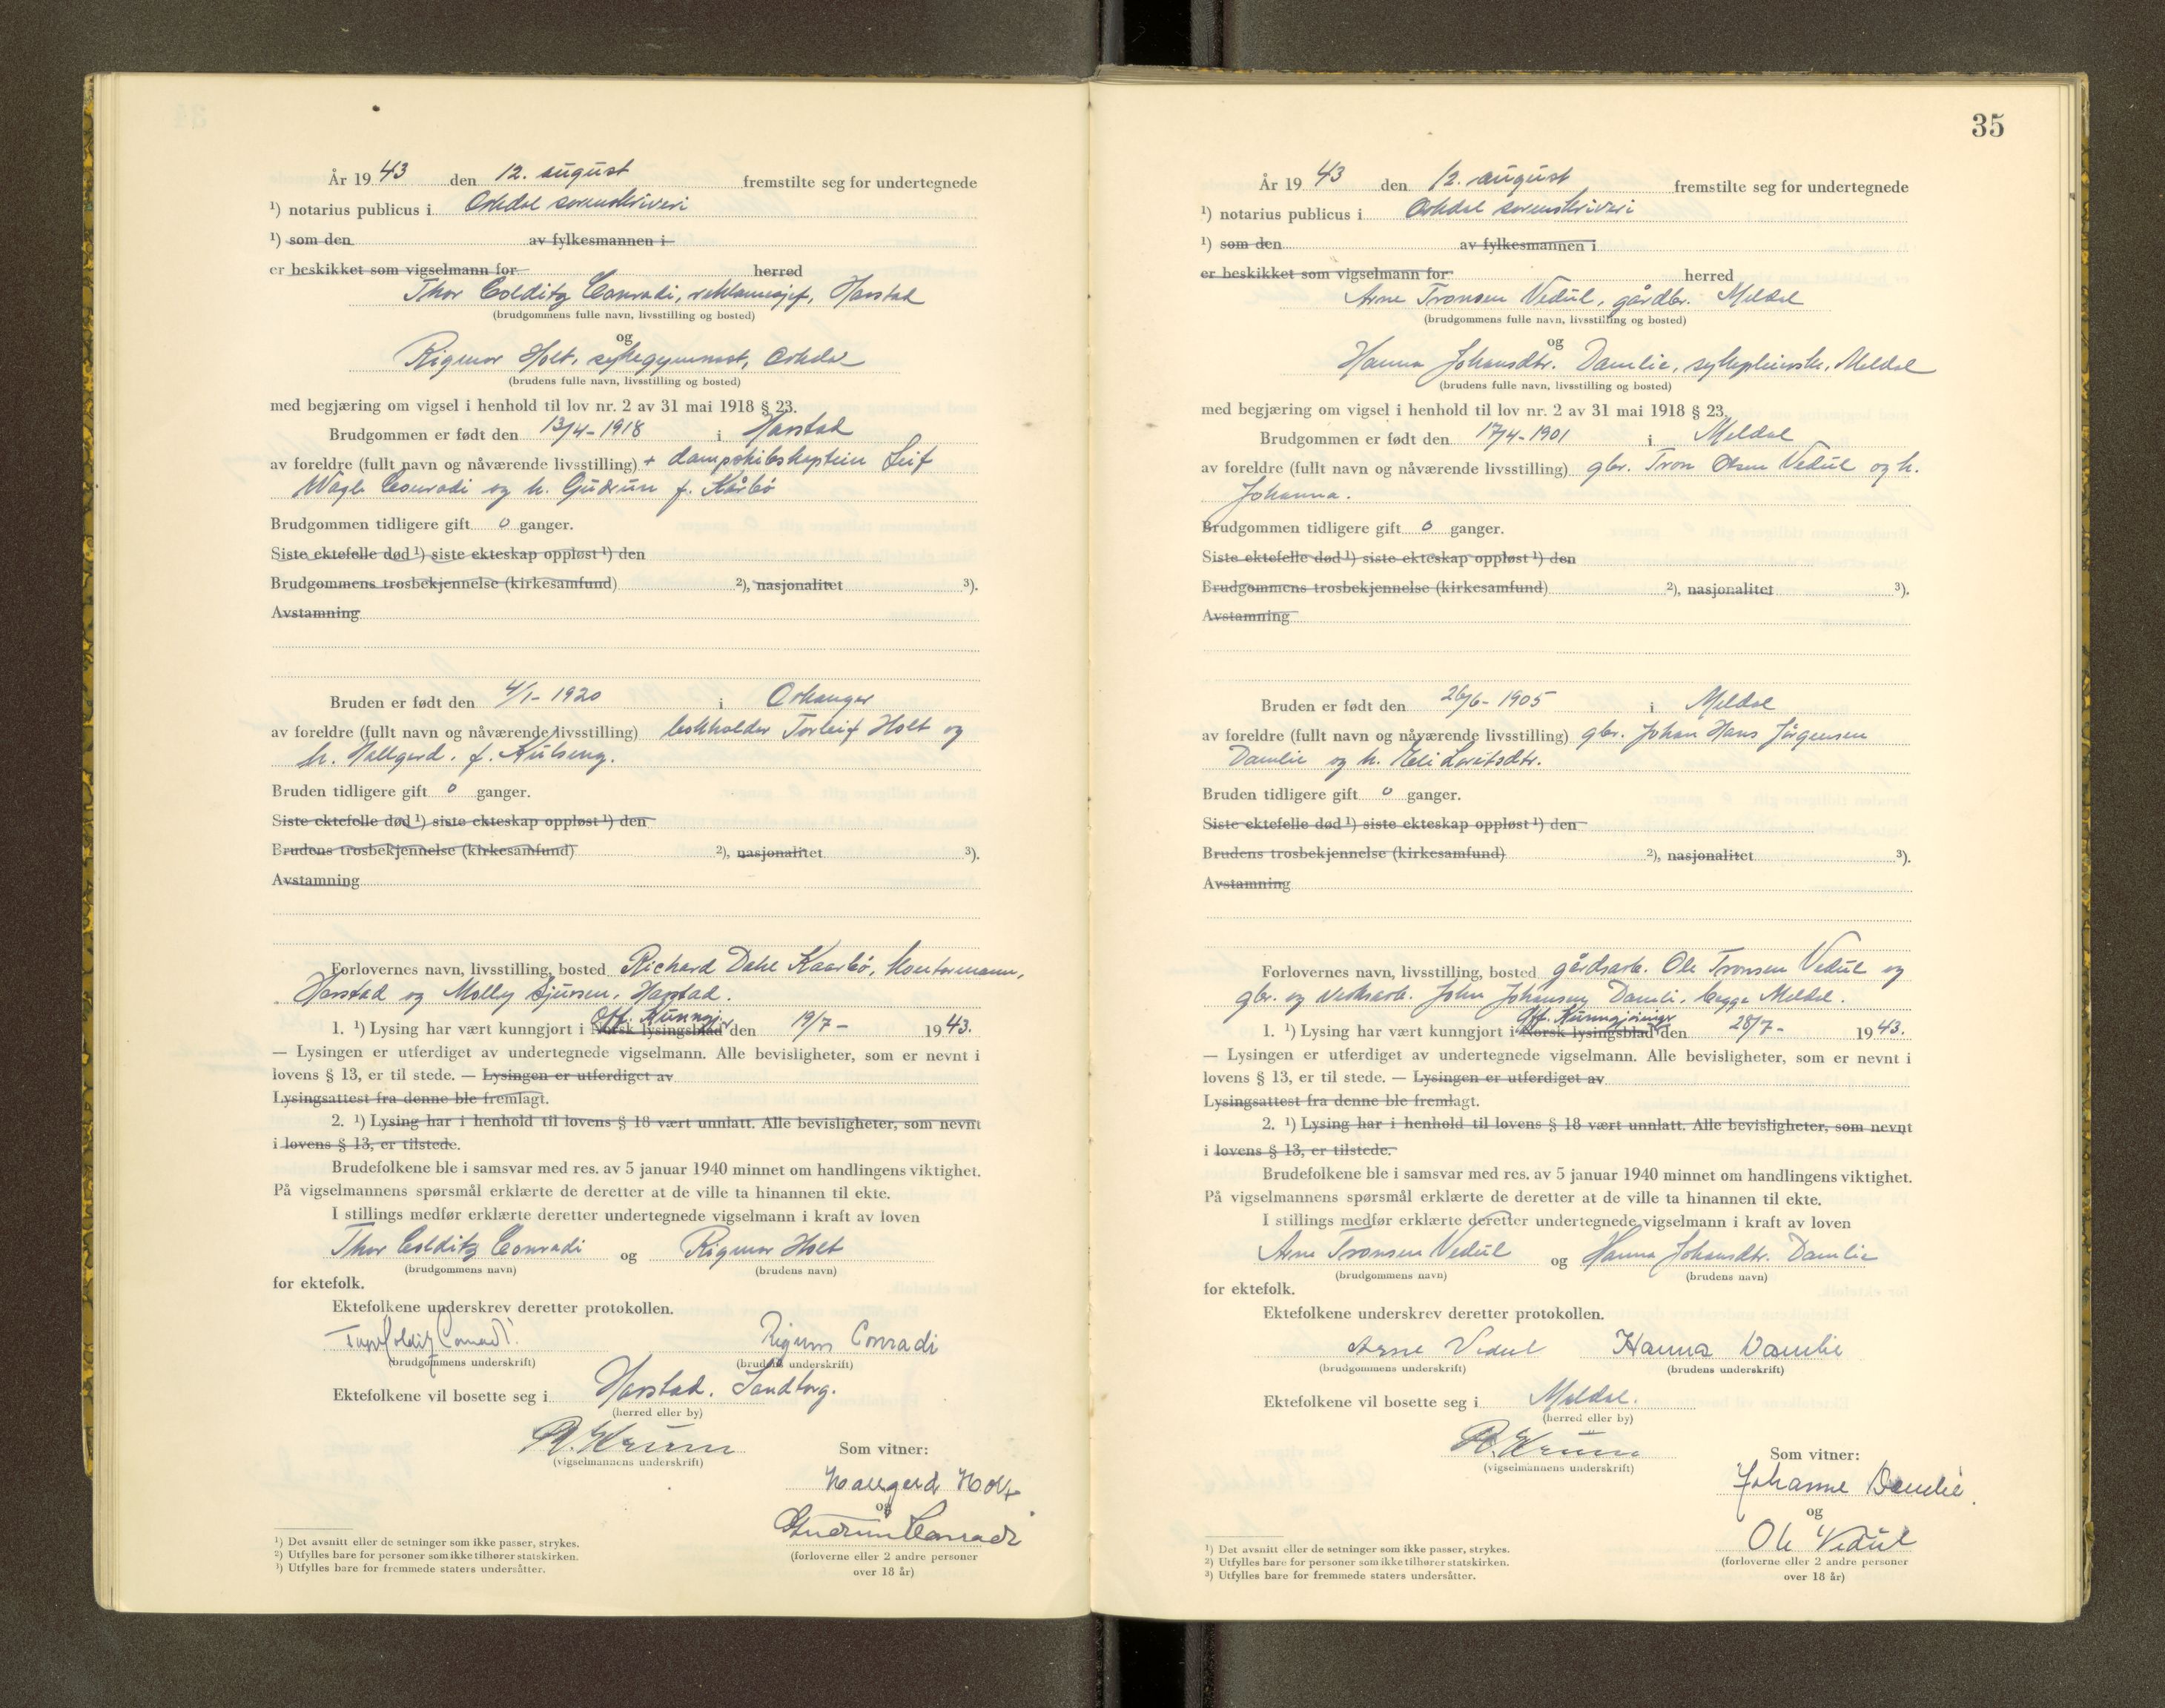 År 19 43 den 12. august fremstilte seg for undertegnede
¹) notarius publicus i Orkdal sorenskriveri
¹) som den av fylkesmannen i
er beskikket som vigselmann for herred
Thor Colditz Conradi, reklamesjef, Harstad
(brudgommens fulle navn, livsstilling og bosted)
og
Rigmor Holt, sykegymnast, Orkdal
(brudens fulle navn, livsstilling og bosted)
med begjæring om vigsel i henhold til lov nr. 2 av 31 mai 1918 § 23.
Brudgommen er født den 13/4-1918 i Harstad
av foreldre (fullt navn og nåværende livsstilling) + dampskibskaptein Leif
Wagle Conradi og h. Gudrun f. Kårbö
Brudgommen tidligere gift 0 ganger.
Siste ektefelle død ¹) siste ekteskap oppløst ¹) den
Brudgommens trosbekjennelse (kirkesamfund) ²), nasjonalitet ³).
Avstamning
Bruden er født den 4/1-1920 i Orkanger
av foreldre (fullt navn og nåværende livsstilling) bokholder Torleif Holt og
h. Hallgerd. f. Kulseng.
Bruden tidligere gift 0 ganger.
Siste ektefelle død ¹) siste ekteskap oppløst ¹) den
Brudens trosbekjennelse (kirkesamfund) ²), nasjonalitet ³).
Avstamning
Forlovernes navn, livsstilling, bosted Richard Dahl Kaarbö, kontormann,
Harstad og Molly Sjursen, Harstad.
Off. Kunngj.
1. ¹) Lysing har vært kunngjort i Norsk lysingsblad den 19/7- 1943.
— Lysingen er utferdiget av undertegnede vigselmann. Alle bevisligheter, som er nevnt i
lovens § 13, er til stede. — Lysingen er utferdiget av
Lysingsattest fra denne ble fremlagt.
2. ¹) Lysing har i henhold til lovens § 18 vært unnlatt. Alle bevisligheter, som nevnt
i lovens § 13, er tilstede.
Brudefolkene ble i samsvar med res. av 5 januar 1940 minnet om handlingens viktighet.
På vigselmannens spørsmål erklærte de deretter at de ville ta hinannen til ekte.
I stillings medfør erklærte deretter undertegnede vigselmann i kraft av loven
Thor Colditz Conradi og Rigmor Holt
(brudgommens navn) (brudens navn)
for ektefolk.
Ektefolkene underskrev deretter protokollen.
Thor Colditz Conradi Rigmor Conradi
(brudgommens underskrift) (brudens underskrift)
Ektefolkene vil bosette seg i Harstad. Sandtorg.
(herred eller by)
(vigselmannens underskrift) Som vitner:
Hallgerd Holt
og
Gudrun Conradi
(forloverne eller 2 andre personer
over 18 år)
¹) Det avsnitt eller de setninger som ikke passer, strykes.
²) Utfylles bare for personer som ikke tilhører statskirken.
³) Utfylles bare for fremmede staters undersåtter.
35
År 19 43 den 12. august fremstilte seg for undertegnede
¹) notarius publicus i Orkdal sorenskriveri
¹) som den av fylkesmannen i
er beskikket som vigselmann for herred
Arne Tronsen Vedul, gårdbr. Meldal
(brudgommens fulle navn, livsstilling og bosted)
og
Hanna Johansdtr. Damlie, sykepleierske, Meldal
(brudens fulle navn, livsstilling og bosted)
med begjæring om vigsel i henhold til lov nr. 2 av 31 mai 1918 § 23.
Brudgommen er født den 17/4-1901 i Meldal
av foreldre (fullt navn og nåværende livsstilling) gbr. Tron Olsen Vedul og h.
Johanna.
Brudgommen tidligere gift 0 ganger.
Siste ektefelle død ¹) siste ekteskap oppløst ¹) den
Brudgommens trosbekjennelse (kirkesamfund) ²), nasjonalitet ³).
Avstamning
Bruden er født den 26/6-1905 i Meldal
av foreldre (fullt navn og nåværende livsstilling) gbr. Johan Hans Jörgensen
Damlie og h. Eli
Bruden tidligere gift 0 ganger.
Siste ektefelle død ¹) siste ekteskap oppløst ¹) den
Brudens trosbekjennelse (kirkesamfund) ²), nasjonalitet ³).
Avstamning
Forlovernes navn, livsstilling, bosted gårdsarb. Ole Tronsen Vedul og
gbr. og verksarb. John Johansen Damli, begge Meldal.
Off. Kunngjöringer
1. ¹) Lysing har vært kunngjort i Norsk lysingsblad den 28/7- 1943.
— Lysingen er utferdiget av undertegnede vigselmann. Alle bevisligheter, som er nevnt i
lovens § 13, er til stede. — Lysingen er utferdiget av
Lysingsattest fra denne ble fremlagt.
2. ¹) Lysing har i henhold til lovens § 18 vært unnlatt. Alle bevisligheter, som nevnt
i lovens § 13, er tilstede.
Brudefolkene ble i samsvar med res. av 5 januar 1940 minnet om handlingens viktighet.
På vigselmannens spørsmål erklærte de deretter at de ville ta hinannen til ekte.
I stillings medfør erklærte deretter undertegnede vigselmann i kraft av loven
Arne Tronsen Vedul og Hanna Johansdtr. Damlie
(brudgommens navn) (brudens navn)
for ektefolk.
Ektefolkene underskrev deretter protokollen.
Arne Vedul Hanna Damlie
(brudgommens underskrift) (brudens underskrift)
Ektefolkene vil bosette seg i Meldal.
(herred eller by)
(vigselmannens underskrift) Som vitner:
Johanne Damlie
og
Ole Vedul
(forloverne eller 2 andre personer
over 18 år)
¹) Det avsnitt eller de setninger som ikke passer, strykes.
²) Utfylles bare for personer som ikke tilhører statskirken.
³) Utfylles bare for fremmede staters undersåtter.